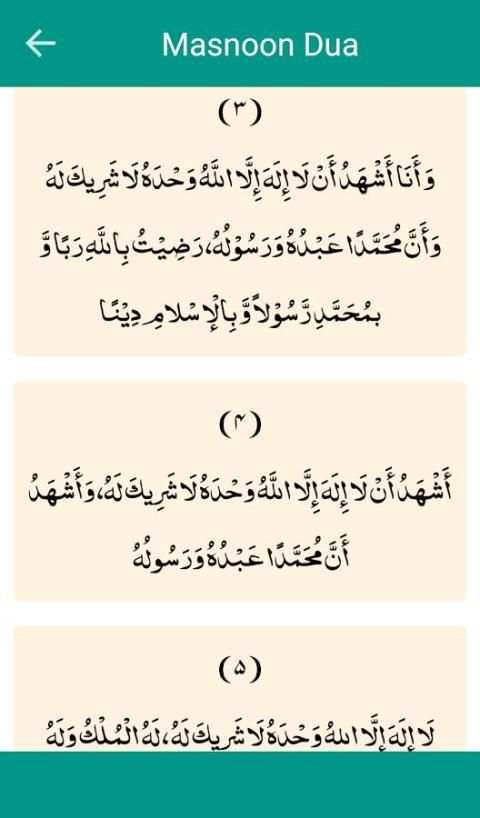 Masnoon Dua
(۳)
وَأَنَا أَشْهَدُ أَنْ لَا إِلَهَ إِلَّا اللَّهُ وَحْدَهُ لَا شَرِيكَ لَهُ
وَأَنَّ مُحَمَّدًا عَبْدُهُ وَرَسُوْلُهُ، رَضِيْتُ بِاللَّهِ رَبًّا وَّ
بمُحَمَّدِ رَّسُوْلاً وَّ بِالْإِسْلامِ دِيْنًا
(۴)
أَشْهَدُ أَنْ لَا إِلَهَ إِلَّا اللَّهُ وَحْدَهُ لَا شَرِيكَ لَهُ، وَأَشْهَدُ
أَنَّ مُحَمَّدًا عَبْدُهُ وَرَسُولُهُ
(۵)
لَا إِلَهَ إِلَّا اللهُ وَحْدَهُ لَا شَرِيكَ لَهُ، لَهُ الْمُلْكُ وَلَهُ